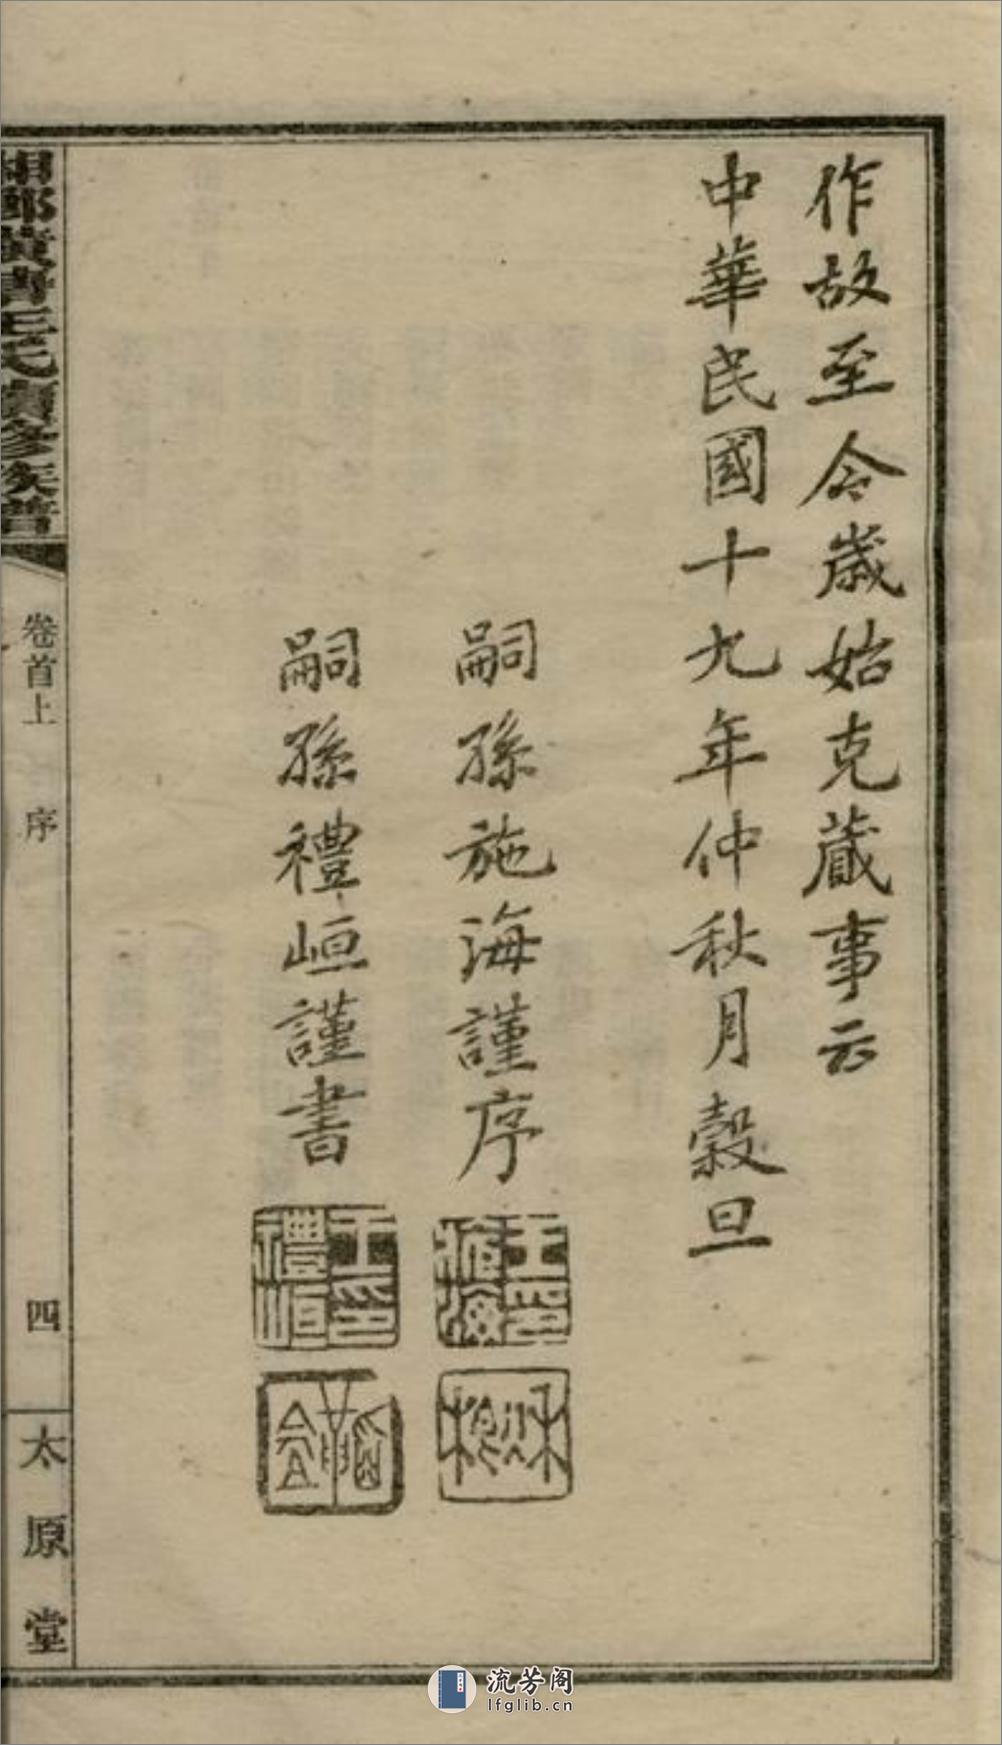 作故至今歲始克蕆事云
中華民國十九年仲秋月穀旦
嗣孫施海謹序
王印施海
嗣孫禮峘謹書
王印禮峘
氏續修族譜
卷首上
序
四
太原堂
流芳阁
lfglib.cn